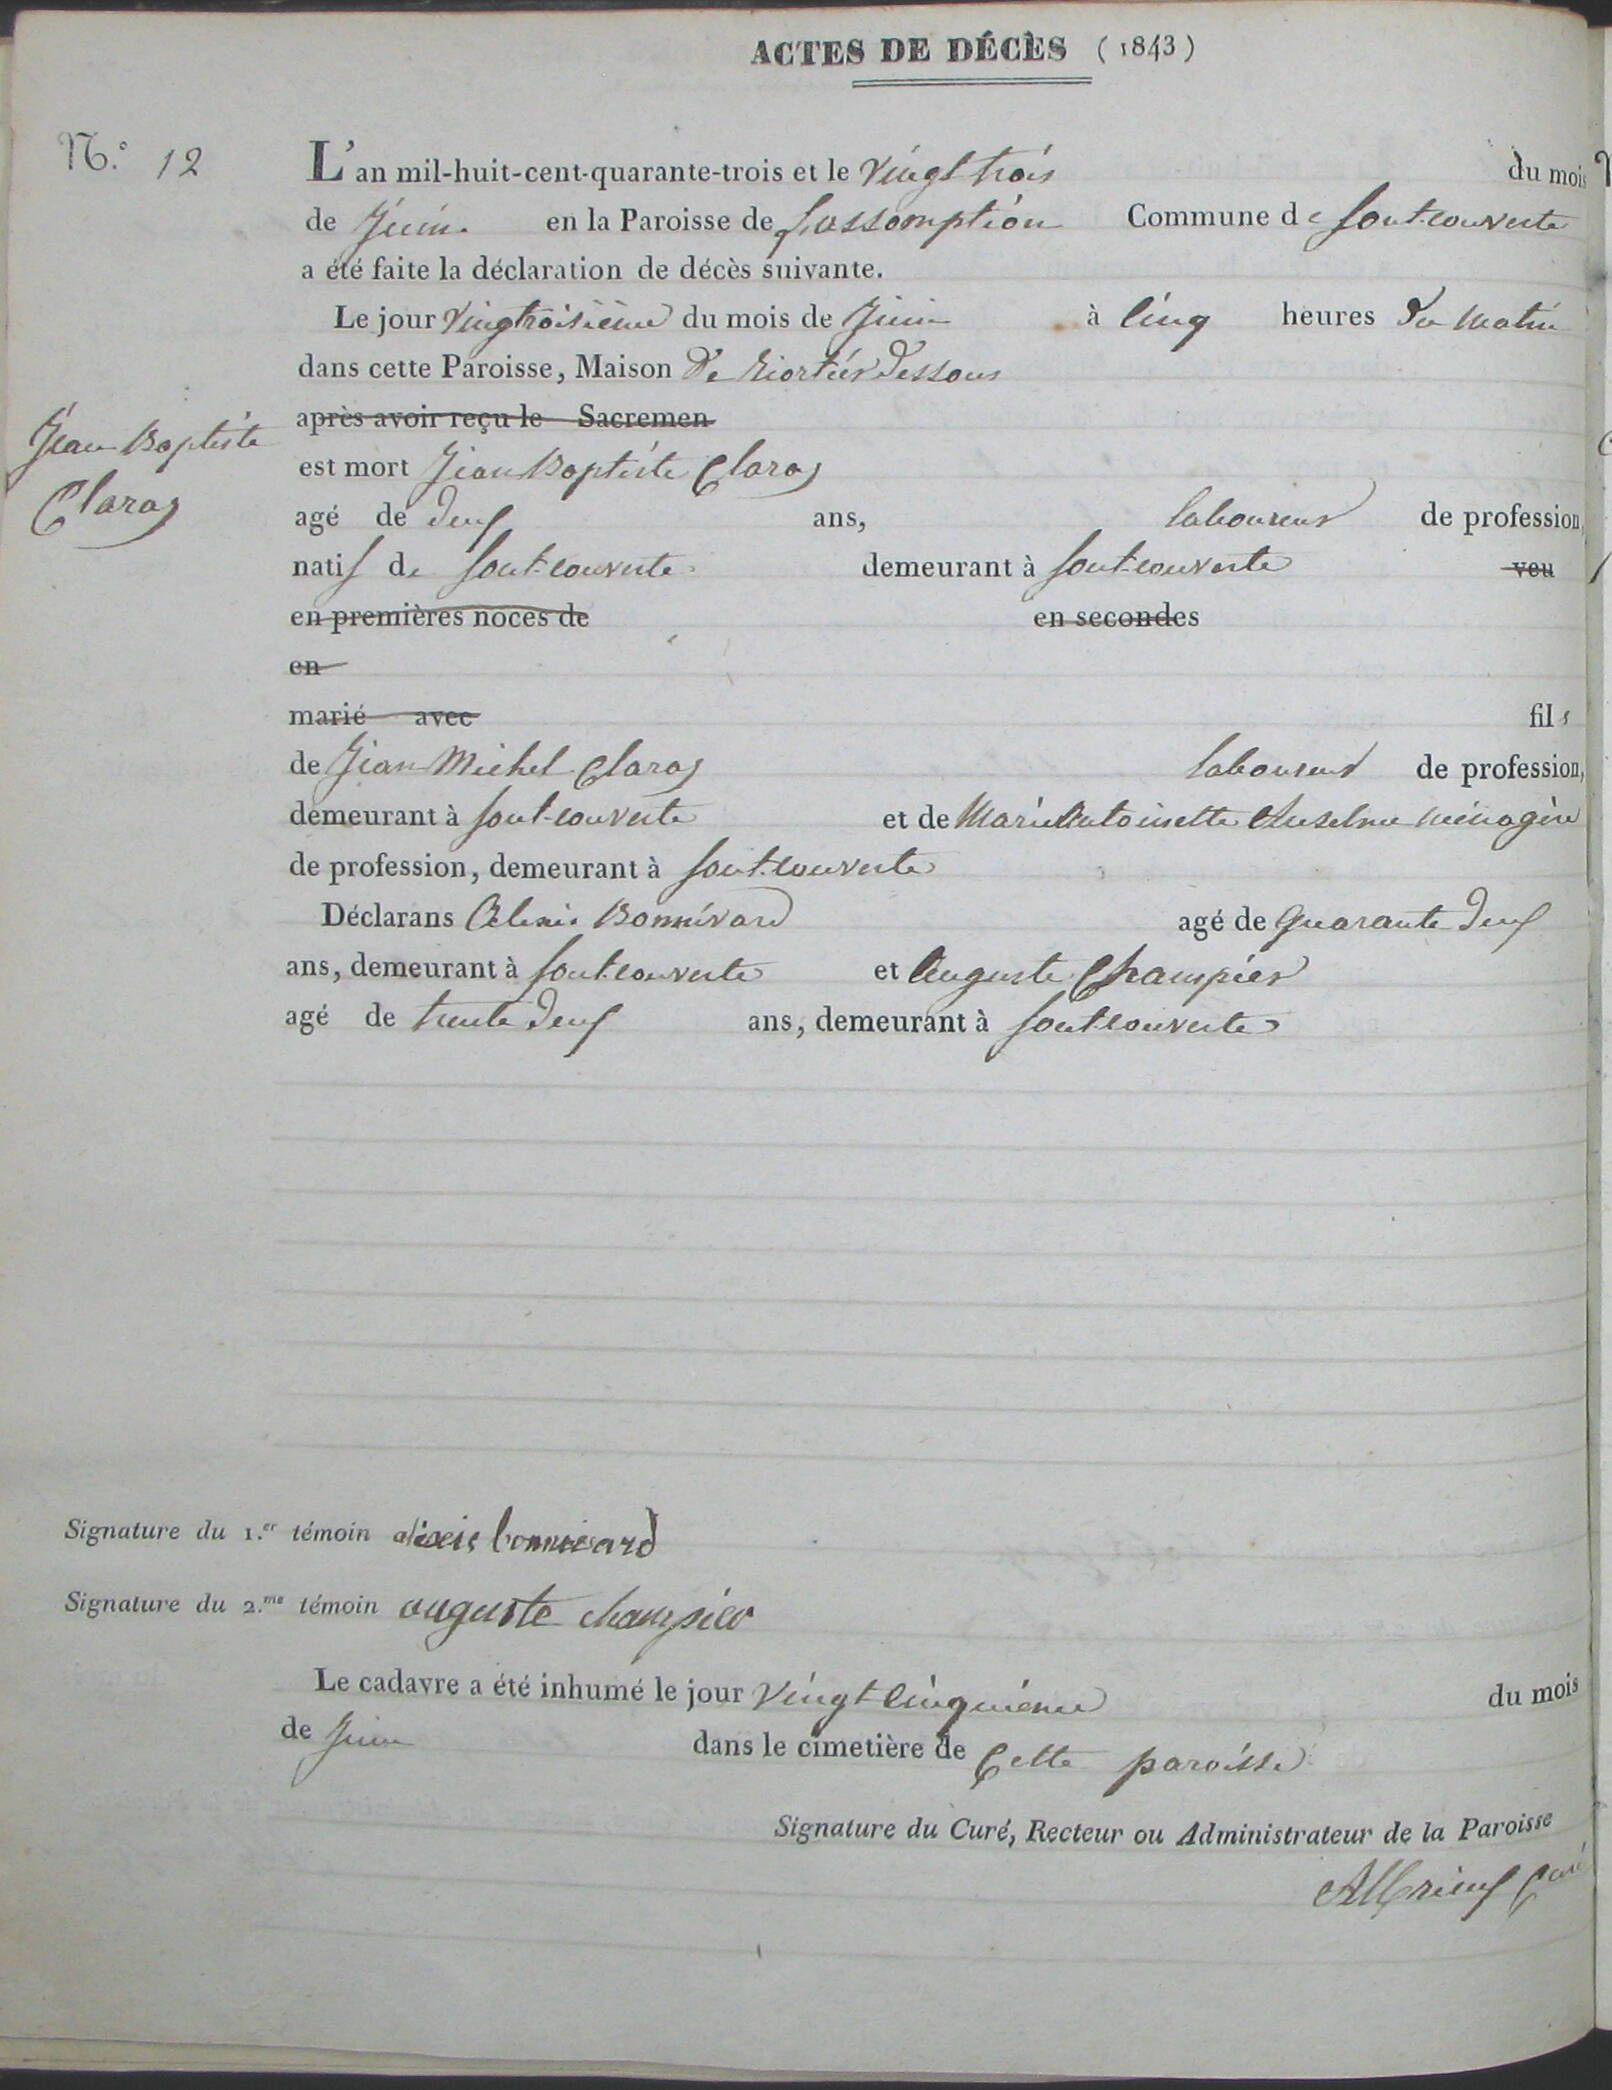 ACTES DE DÉCÈS (1843)
N.º 12
L'an mil-huit-cent-quarante-trois et le vingt trois du mois
de juin. en la Paroisse de l'assomption Commune de font-couverte
a été faite la déclaration de décès suivante.
Le jour vingtroisième du mois de juin à cinq heures du matin
dans cette Paroisse, Maison de dessous
après avoir reçu le Sacremen
Jean Baptiste
Claraz
est mort Jean Baptiste Claraz
agé de deux ans, laboureur de profession,
natif de font-couverte demeurant à font-couverte veu
en premières noces de en secondes
en
marié avec fils
de Jean Michel Claraz laboureur de profession,
demeurant à font-couverte et de Marie Antoinette Anselme ménagère
de profession, demeurant à font-couverte
Déclarans Alexis Bonnivard agé de quarante deux
ans, demeurant à font-couverte et Auguste Champier
agé de trente deux ans, demeurant à font-couverte
Signature du 1.er témoin alexis bonnivard
Signature du 2.me témoin auguste champier
Le cadavre a été inhumé le jour vingt cinquième du mois
de juin dans le cimetière de cette paroisse
Signature du Curé, Recteur ou Administrateur de la Paroisse
curé